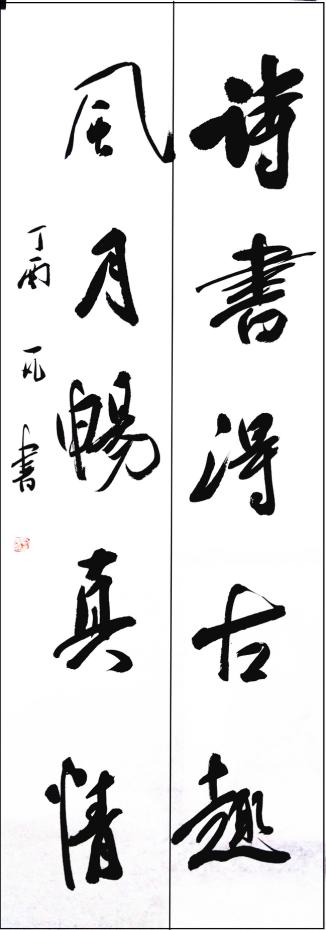 詩書得古趣
風月暢真情
丁酉 一凡 書